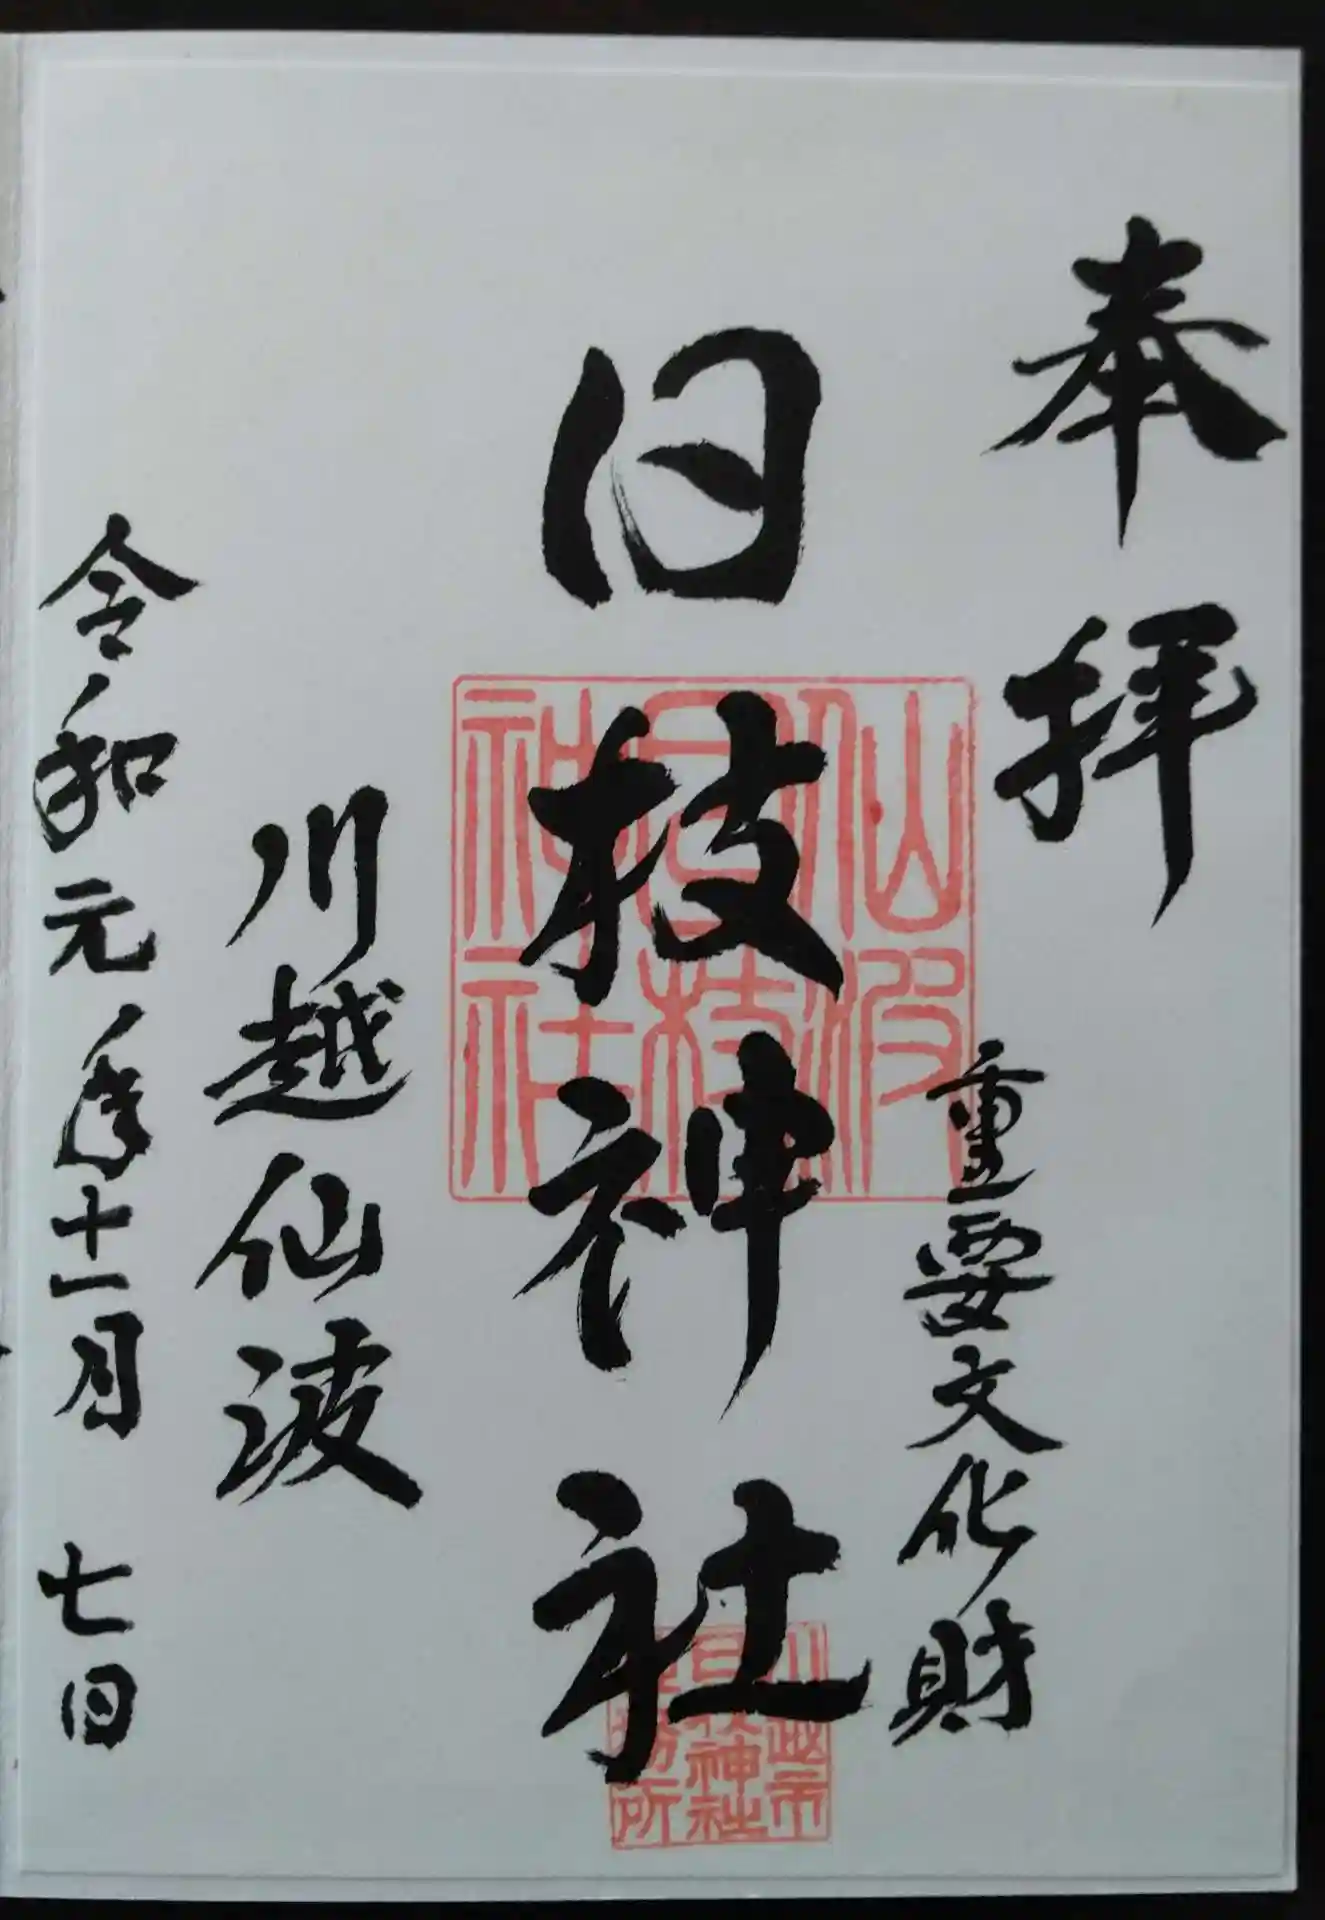 奉拝
重要文化財
日枝神社
川越仙波
令和元年十一月七日
仙波
日枝
神社
川越市
日枝神社
社務所